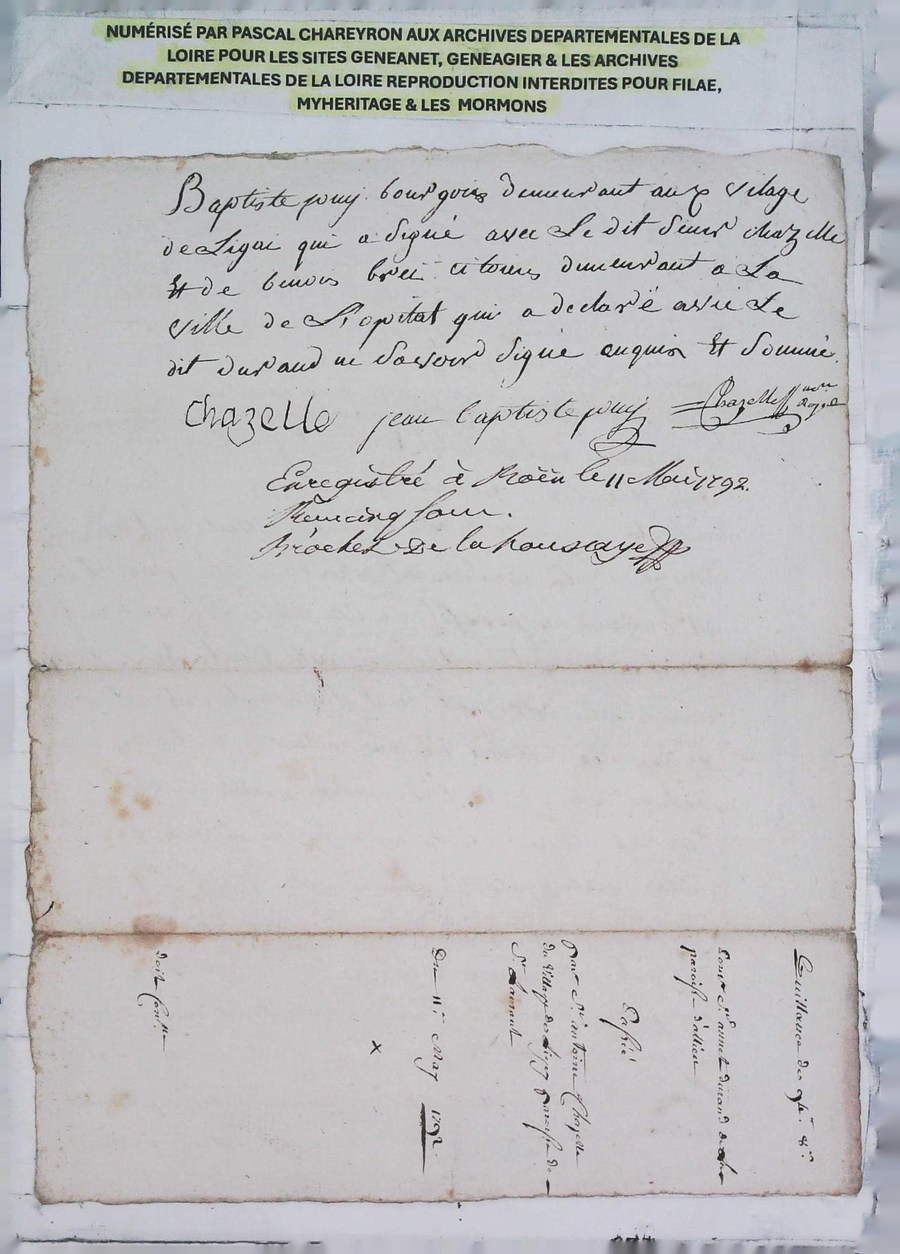 NUMÉRISÉ PAR PASCAL CHAREYRON AUX ARCHIVES DEPARTEMENTALES DE LA
LOIRE POUR LES SITES GENEANET, GENEAGIER & LES ARCHIVES
DEPARTEMENTALES DE LA LOIRE REPRODUCTION INTERDITES POUR FILAE,
MYHERITAGE & LES MORMONS
Baptiste puy bourgois demeurant aux vilage
de Ligai qui a signé avec Le dit sieur chazelle
Et de benois demeurant a La
ville de L'opital qui a declaré avec Le
dit durand ne savoir signé enquis Et sommé.
Chazelle jean baptiste puy Chazelle
Enregistré à Boën le 11 Mai 1792.
cinq sous.
De la
Quittance de
pour Sr annet durand
paroisse d'allieu
Passée
Par Sr antoine Chazelle
du Village de Ligay Paroisse de
St Laurant
Du 11e May 1792
x
doit